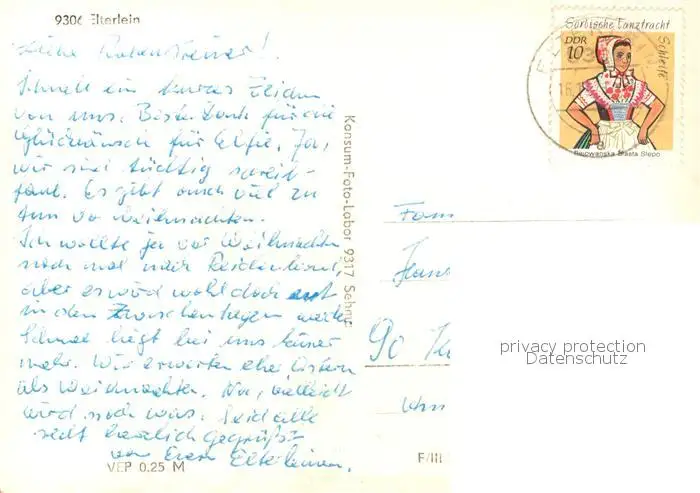 9306 Elterlein
Schnell ein kurzes Zeichen
von uns. Besten Dank für die
Glückwünsche für Elfie. Ja,
wir sind tüchtig schreib-
faul. Es gibt auch viel zu
tun vor Weihnachten.
Ich wollte ja vor Weihnachten
noch mal nach
aber es wird wohl doch erst
in den Zwischentagen werden
Schnee liegt bei uns keiner
mehr. Wir erwarten eher Ostern
als Weihnachten. Na, vielleicht
wird noch was. Seid alle
recht herzlich gegrüßt
von Euren Elterleinern.
VEP 0.25 M
Konsum-Foto-Labor 9317 Sehma
Sorbische Tanztracht
Schleife
DDR
10
Serbska Slepo
Fam
Hans
90
F/III
privacy protection
Datenschutz